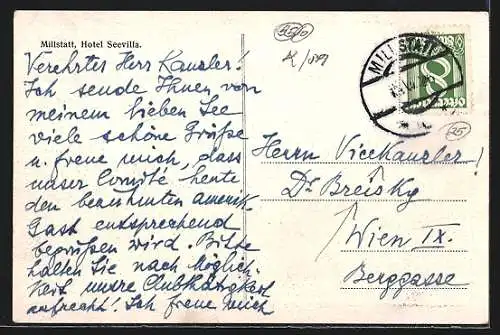 Millstatt, Hotel Seevilla.
Verehrtes Herr Kanzler!
Ich sende Ihnen von
meinem lieben See
viele schöne Grüße
u. freue mich, dass
unser Comité heute
den berühmten amerik.
Gast entsprechend
begrüßen wird. Bitte
halten Sie nach Möglich-
keit unsre Clubthätigkeit
aufrecht! Ich freue mich
MILLSTATT
25
Herrn Vicekanzler!
Dr Breisky
Wien IX.
Berggasse